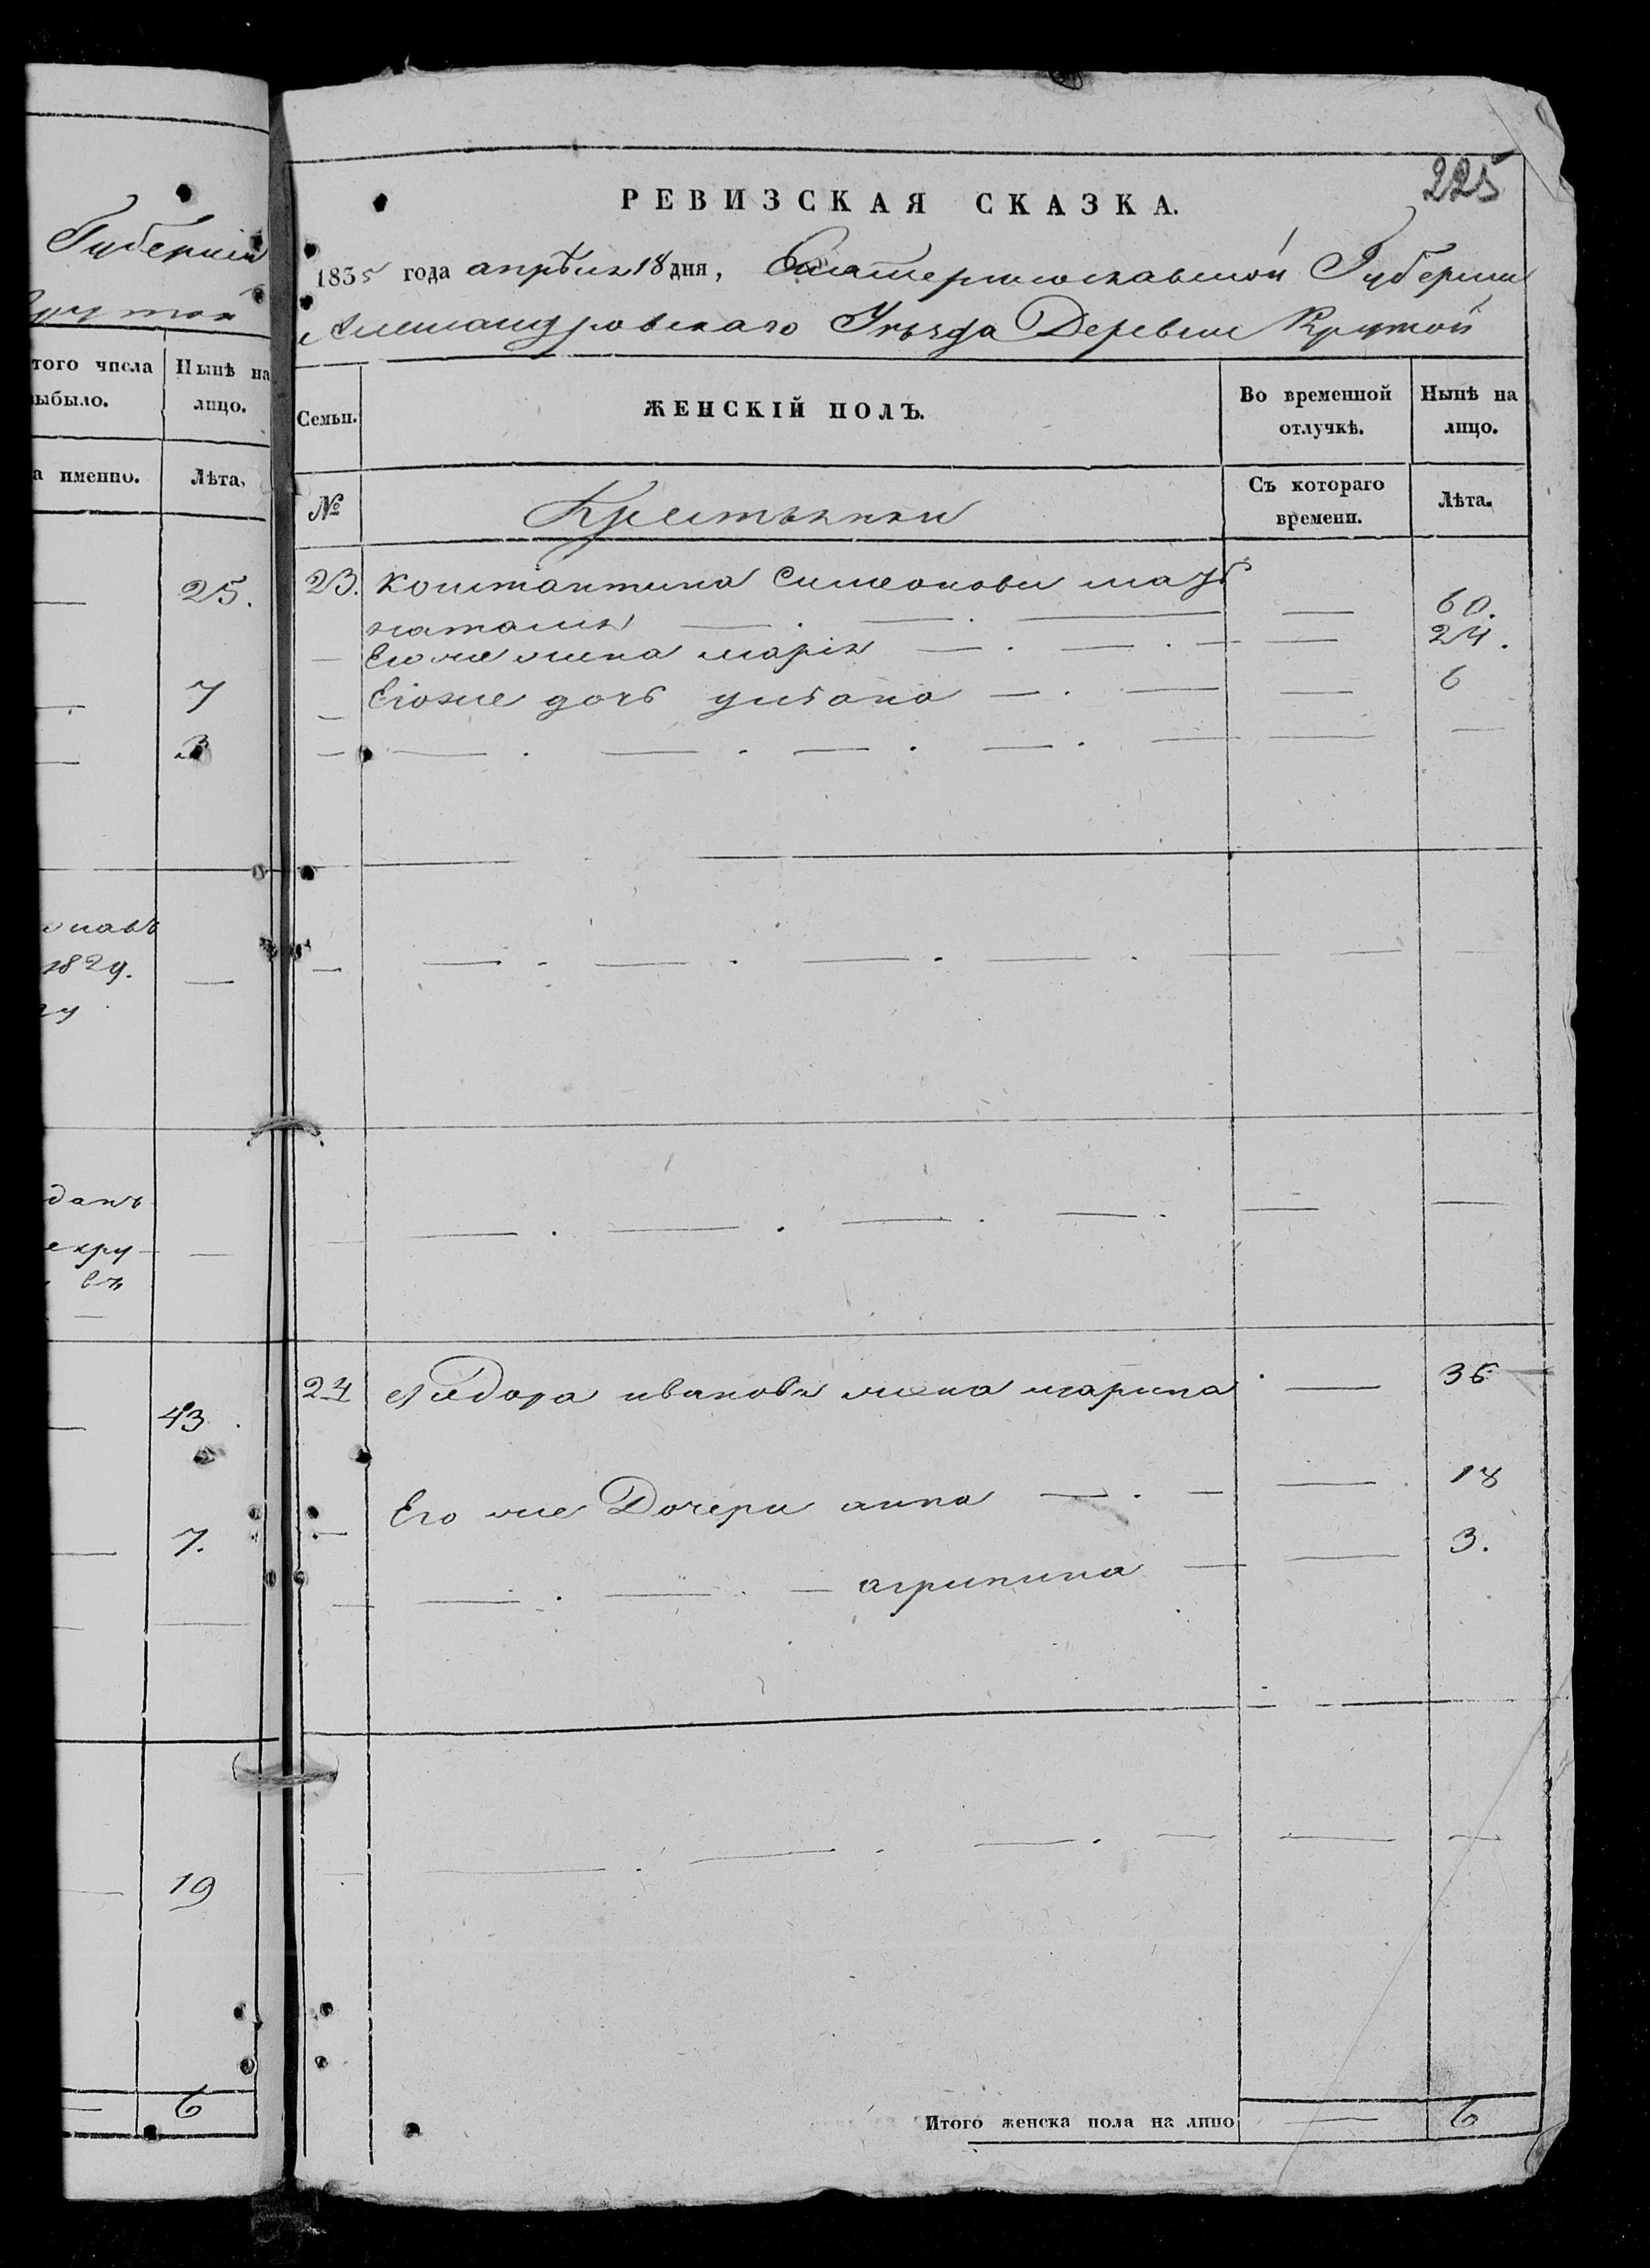 Губернiи
Крутой
того числа
выбыло.
Нынѣ на
лицо.
а именно.
Лѣта.
25.
7
3
1829.
данъ
екру
въ
43
7.
19
6
225
РЕВИЗСКАЯ СКАЗКА.
1835 года апрѣля 18 дня, Екатеринославской Губернии
Александровскаго Уѣзда Деревни Крутой
Семьи.
ЖЕНСКІЙ ПОЛЪ.
Во временной
отлучкѣ.
Нынѣ на
лицо.
№
Крестьянки
Съ котораго
времени.
Лѣта.
23. Константина Симеонова мать
наталия — 60.
Его же жена мария — 24.
Егоже дочь улiана — 6
24 Федора иванова жена марина — 36
Его же Дочери анна — 18
агрипина — 3.
Итого женска пола на лицо — 6